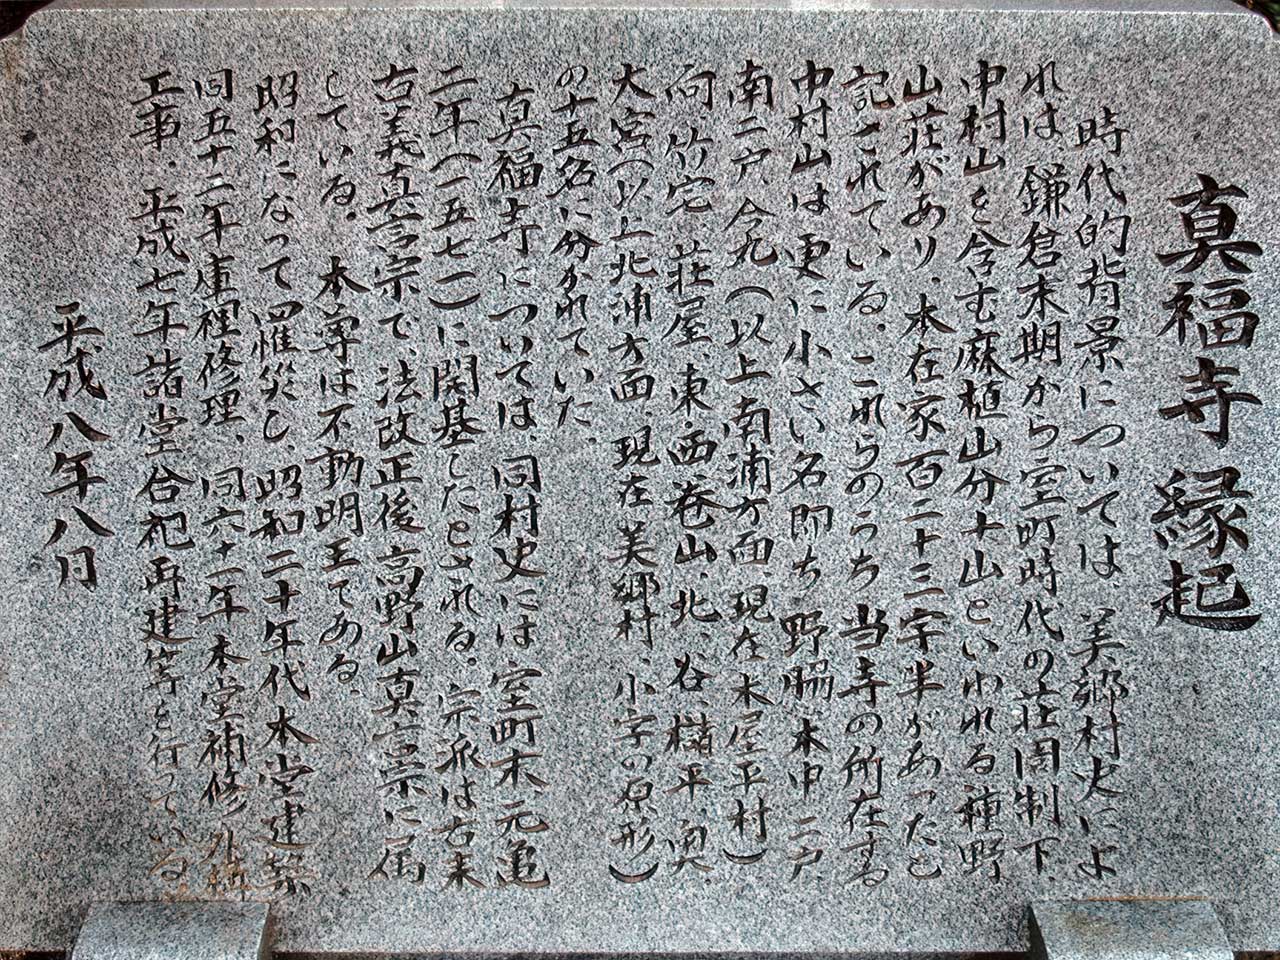 真福寺縁起
時代的背景については、美郷村史によ
れは、鎌倉末期から室町時代の荘園制下、
中村山を含む麻植山分十山といわれる種野
山荘があり、本在家百二十三宇半があったと
記されている。これらのうち当寺の所在する
中村山は更に小さい名即ち野脇、木中二戸、
南二戸、今丸（以上南浦方面、現在木屋平村）
向竹宅、荘屋、東、西巻山、北、谷、楮平、奥、
大宮（以上北浦方面、現在美郷村、小字の原形）
の十五名に分かれていた。
真福寺については、同村史には室町末元亀
二年（一五七一）に開基したとされる。宗派は古来
古義真言宗で、法改正後高野山真言宗に属
している。本尊は不動明王である。
昭和になって四罹災し、昭和二十年代本堂建築
同五十二年庫裡修理、同六十一年本堂補修、外
工事、平成七年諸堂合祀再建等を行っている
平成八年八月